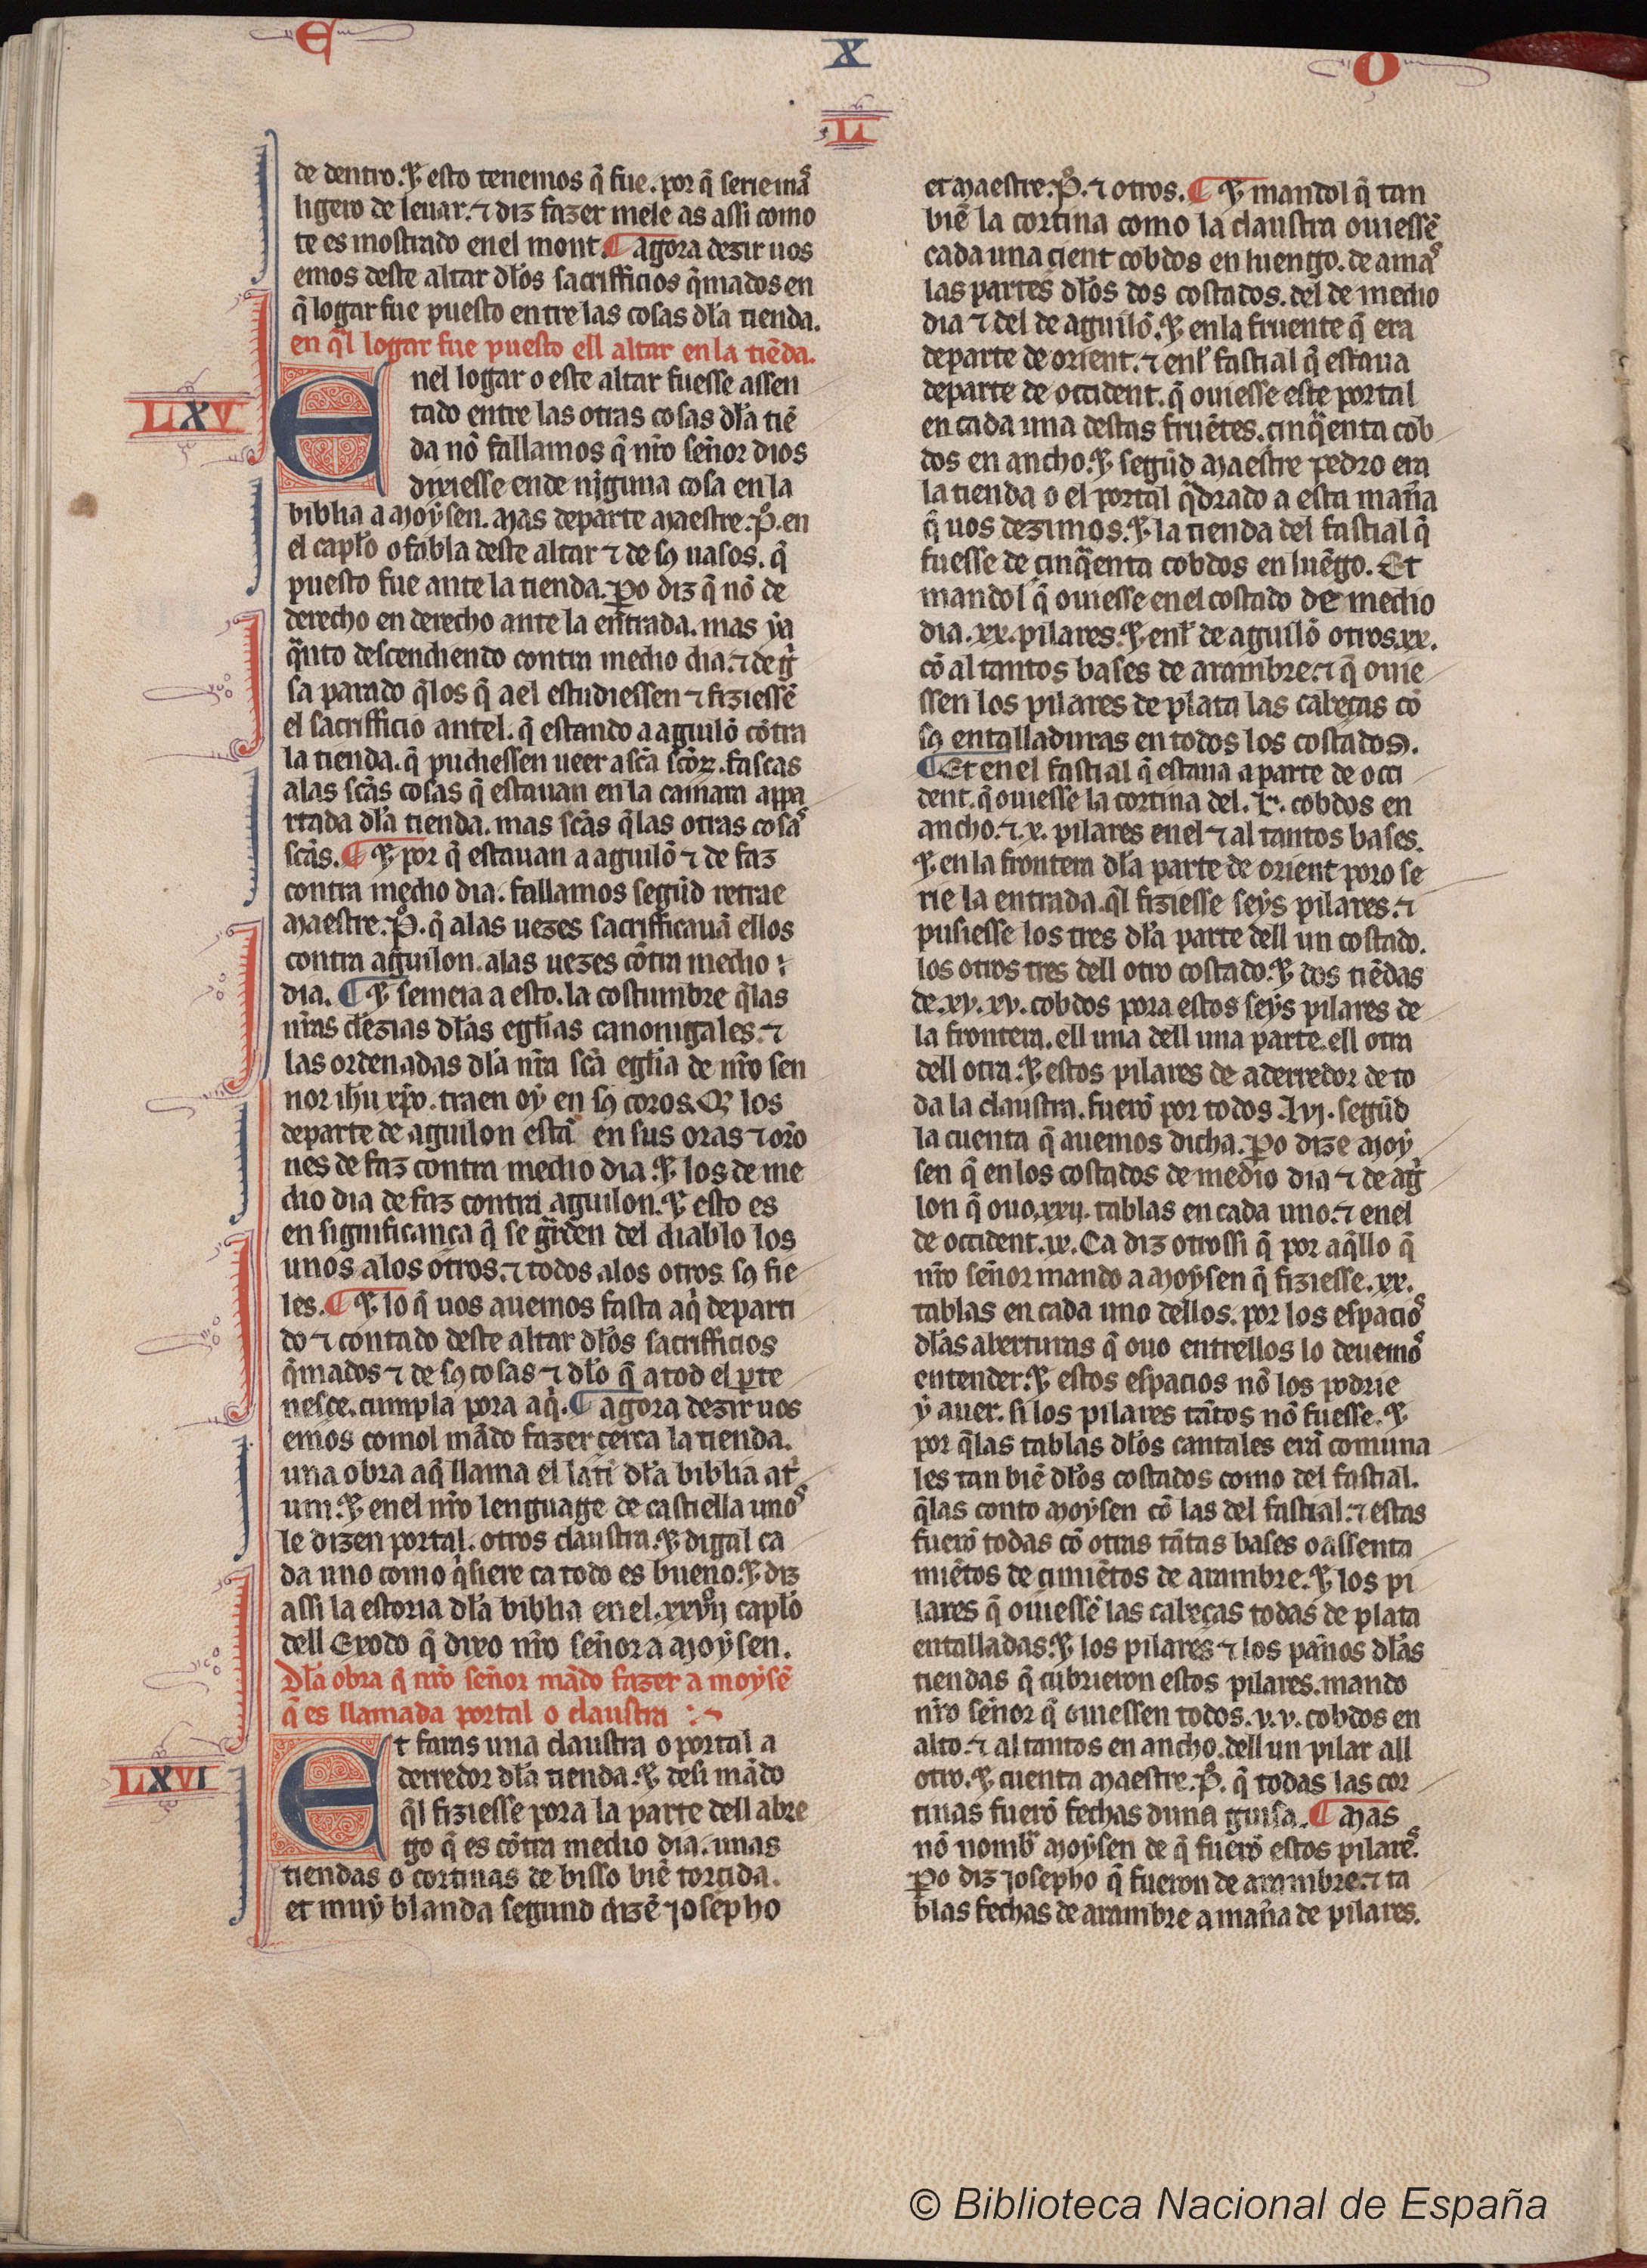 E X O
LI
de dentro. ⁊ esto tenemos q̃ fue. por q̃ serie mas
ligero de leuar. ⁊ diz fazer mele as assi como
te es mostrado en el mont. ¶ agora dezir uos
emos deste altar dłos sacrifficios q̃mados en
q̃ logar fue puesto entre las cosas dła tienda.
en q̃l logar fue puesto ell altar en la tiẽda.
LXV
Enel logar o este altar fuesse assen
tado entre las otras cosas dła tiẽ
da nõ fallamos q̃ nr̃o señor dios
dixiesse ende nĩguna cosa en la
biblia a Moysen. Mas departe Maestre. P̊. en
el capłо o fabla deste altar ⁊ de sꝯ uasos. q̃
puesto fue ante la tienda. ꝑo diz q̃ nõ de
derecho en derecho ante la entrada. mas ya
q̃nto descendiendo contra medio dia. ⁊ de gͥ
sa parado q̃los q̃ a el estudiessen ⁊ fiziessẽ
el sacrifficio antel. q̃ estando a aguilõ cõtra
la tienda. q̃ pudiessen ueer a sc̃a sc̃oꝝ. fascas
alas sc̃as cosas q̃ estauan en la camara appa
rtada dła tienda. mas sc̃as q̃las otras cosas
sc̃as. ¶ ⁊ por q̃ estauan a aguilõ ⁊ de faz
contra medio dia. fallamos segũd retrae
Maestre. P̊. q̃ alas uezes sacrifficauã ellos
contra aguilon. alas uezes cõtra medio :
dia. ¶ ⁊ semeia a esto. la costumbre q̃las
nr̃as clezias dłas egłias canonigales. ⁊
las ordenadas dła nr̃a sc̃a egłia de nr̃o sen
nor ihũ xp̃o. traen oy en sꝯ coros. Q̃ los
departe de aguilon estã en sus oras ⁊ or̃o
nes de faz contra medio dia. ⁊ los de me
dio dia de faz contra aguilon. ⁊ esto es
en significança q̃ se gr̃den del diablo los
unos alos otros. ⁊ todos alos otros sꝯ fie
les. ¶ ⁊ lo q̃ uos auemos fasta aqͥ departi
do ⁊ contado deste altar dłos sacrifficios
q̃mados ⁊ de sꝯ cosas ⁊ dło q̃ a tod el ꝑte
nesçe. cumpla pora aqͥ. ¶ agora dezir uos
emos comol mãdo fazer çerca la tienda.
una obra a q̃ llama el latĩ dła biblia atͥ
um. ⁊ en el nr̃o lenguage de castiella unos
le dizen portal. otros claustra. ⁊ digal ca
da uno como q̃siere ca todo es bueno. ⁊ diz
assi la estoria dła biblia en el. xxvij capło
dell Exodo q̃ dixo nr̃o señor a Moysen.
Dła obra q̃ nr̃o señor mãdo fazer a moysẽ
q̃ es llamada portal o claustra : ~
LXVI
Et faras una claustra o portal a
derredor dła tienda. ⁊ desi mãdo
q̃l fiziesse pora la parte dell abre
go q̃ es cõtra medio dia. unas
tiendas o cortinas de bisso biẽ torcida.
et muy blanda segund dizẽ Josepho
et Maestre. P̊. ⁊ otros. ¶ ⁊ mandol q̃ tan
biẽ la cortina como la claustra ouiessẽ
cada una cient cobdos en luengo. de amas
las partes dłos dos costados. del de medio
dia ⁊ del de aguilõ. ⁊ en la fruente q̃ era
departe de orient. ⁊ enł fastial q̃ estaua
departe de occident. q̃ ouiesse este portal
en cada una destas fruẽtes. cinq̃enta cob
dos en ancho. ⁊ segũd Maestre Pedro era
la tienda o el portal q̃drado a esta mañа
q̃ uos dezimos. ⁊ la tienda del fastial q̃
fuesse de cinq̃enta cobdos en luẽgo. Et
mandol q̃ ouiesse en el costado de medio
dia. xx. pilares. ⁊ enł de aguilõ otros. xx.
cõ al tantos bases de arambre. ⁊ q̃ ouie
ssen los pilares de plata las cabeças cõ
sꝯ entalladuras en todos los costados.
¶ Et en el fastial q̃ estaua a parte de occi
dent. q̃ ouiesse la cortina del. L. cobdos en
ancho. ⁊. x. pilares en el ⁊ al tantos bases.
⁊ en la frontera dła parte de orient poro se
rie la entrada. q̃l fiziesse seys pilares. ⁊
pusiesse los tres dła parte dell un costado.
los otros tres dell otro costado. ⁊ dos tiẽdas
de. xv. xv. cobdos pora estos seys pilares de
la frontera. ell una dell una parte. ell otra
dell otra. ⁊ estos pilares de aderredor de to
da la claustra. fuerõ por todos. lvj. segũd
la cuenta q̃ auemos dicha. ꝑo dize Moy
sen q̃ en los costados de medio dia ⁊ de agͥ
lon q̃ ouo. xxij. tablas en cada uno. ⁊ en el
de occident. xx. Ca diz otrossi q̃ por aq̃llo q̃
nr̃o señor mando a Moysen q̃ fiziesse. xx.
tablas en cada uno dellos. por los espacios
dłas aberturas q̃ ouo entrellos lo deuemos
entender. ⁊ estos espacios nõ los podrie
y auer. si los pilares tãtos nõ fuesse. ⁊
por q̃las tablas dłos cantales erã comuna
les tan biẽ dłos costados como del fastial.
q̃las conto Moysen cõ las del fastial. ⁊ estas
fuerõ todas cõ otras tãtas bases o assenta
miẽtos de cimiẽtos de arambre. ⁊ los pi
lares q̃ ouiessẽ las cabeças todas de plata
entalladas. ⁊ los pilares ⁊ los paños dłas
tiendas q̃ cubrieron estos pilares. mando
nr̃o señor q̃ ouiessen todos. v. v. cobdos en
alto. ⁊ al tantos en ancho. dell un pilar all
otro. ⁊ cuenta Maestre. P̊. q̃ todas las cor
tinas fuerõ fechas duna guisa. ¶ Mas
nõ nombͣ Moysen de q̃ fuerõ estos pilares.
ꝑo diz Josepho q̃ fueron de arambre. ⁊ ta
blas fechas de arambre a mañа de pilares.
© Biblioteca Nacional de España